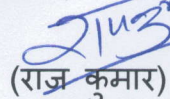 (राज कुमार)